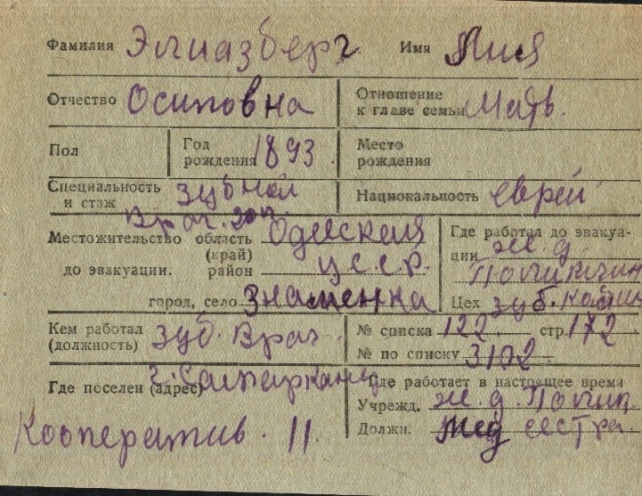 Фамилия Элиазберг Имя Лия
Отчество Осиповна Отношение к главе семьи Мать.
Пол Год рождения 1893 Место рождения
Специальность и стаж Зубной Врач. Национальность еврей
Местожительство область (край) Одесская
до эвакуации. район
город, село Знаменка
Где работал до эвакуации ж. д.
Цех зуб.
Кем работал (должность) Зуб. Врач № списка 122 стр. 172
№ по списку 3102
Где поселен (адрес) г. Самарканд
Кооператив. 11.
Где работает в настоящее время
Учрежд. ж. д.
Должн. мед сестра